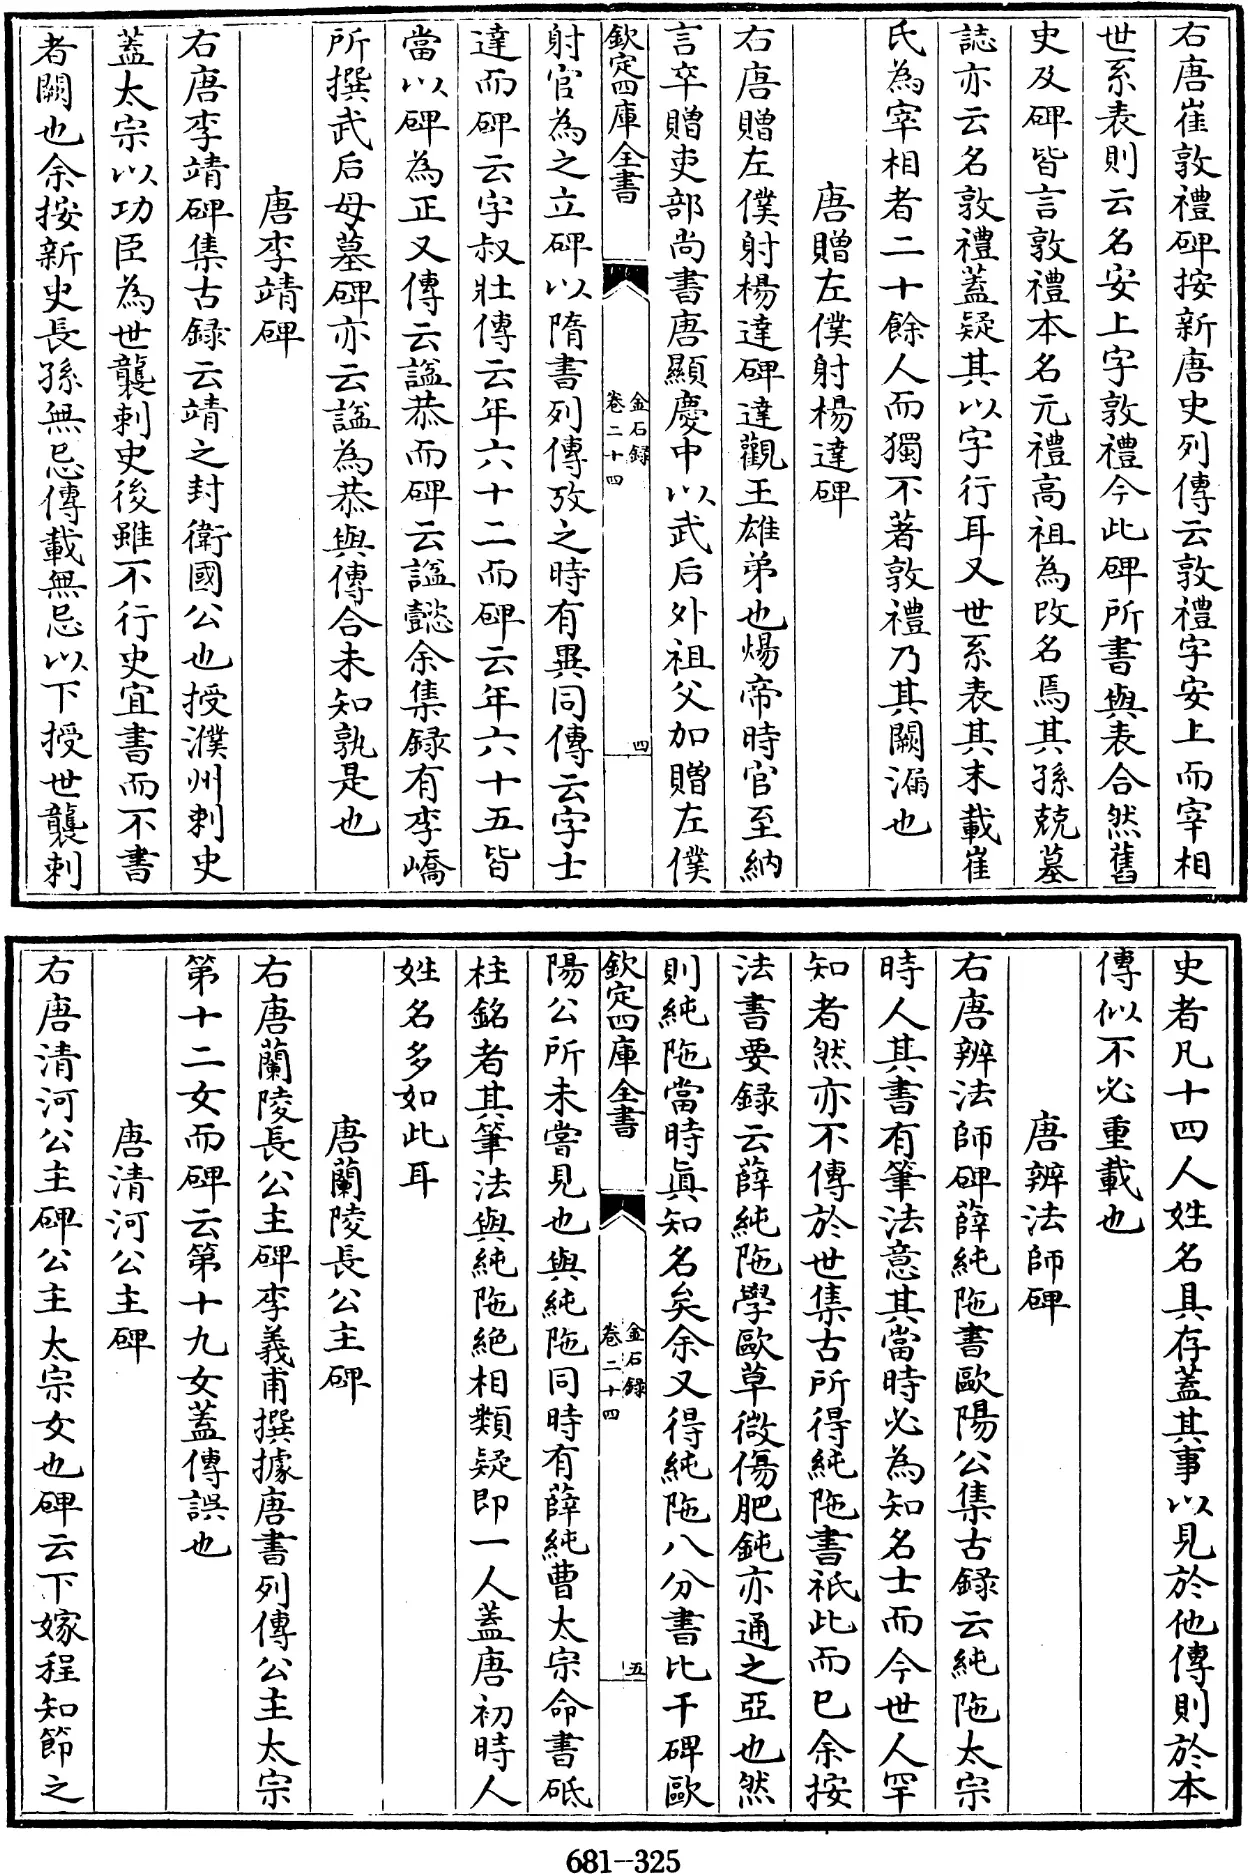 右唐崔敦禮碑按新唐史列傳云敦禮字安上而宰相
世系表則云名安上字敦禮今此碑所書與表合然舊
史及碑皆言敦禮本名元禮高祖為改名焉其孫兢墓
誌亦云名敦禮蓋疑其以字行耳又世系表其末載崔
氏為宰相者二十餘人而獨不著敦禮乃其闕漏也
唐贈左僕射楊達碑
右唐贈左僕射楊達碑達觀王雄弟也煬帝時官至納
言卒贈吏部尚書唐顯慶中以武后外祖父加贈左僕
欽定四庫全書
金石録
卷二十四
四
射官為之立碑以隋書列傳攷之時有異同傳云字士
達而碑云字叔壯傳云年六十二而碑云年六十五皆
當以碑為正又傳云諡恭而碑云諡懿余集録有李嶠
所撰武后母墓碑亦云諡為恭與傳合未知孰是也
唐李靖碑
右唐李靖碑集古録云靖之封衛國公也授濮州刺史
蓋太宗以功臣為世襲刺史後雖不行史宜書而不書
者闕也余按新史長孫無忌傳載無忌以下授世襲刺
史者凡十四人姓名具存蓋其事以見於他傳則於本
傳似不必重載也
唐辨法師碑
右唐辨法師碑薛純陁書歐陽公集古録云純陁太宗
時人其書有筆法意其當時必為知名士而今世人罕
知者然亦不傳於世集古所得純陁書祇此而已余按
法書要録云薛純陁學歐草微傷肥鈍亦通之亞也然
則純陁當時真知名矣余又得純陁八分書比干碑歐
欽定四庫全書
金石録
卷二十四
五
陽公所未嘗見也與純陁同時有薛純曹太宗命書砥
柱銘者其筆法與純陁絕相類疑即一人蓋唐初時人
姓名多如此耳
唐蘭陵長公主碑
右唐蘭陵長公主碑李義甫撰據唐書列傳公主太宗
第十二女而碑云第十九女蓋傳誤也
唐清河公主碑
右唐清河公主碑公主太宗女也碑云下嫁程知節之
681-325